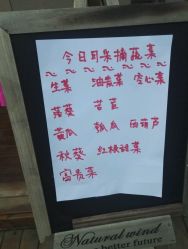 今日可采摘蔬菜
生菜 油麦菜 空心菜
菠菜 苦豆
黄瓜 瓠瓜 西葫芦
秋葵 红根甜菜
富贵菜
Natural wind
better future